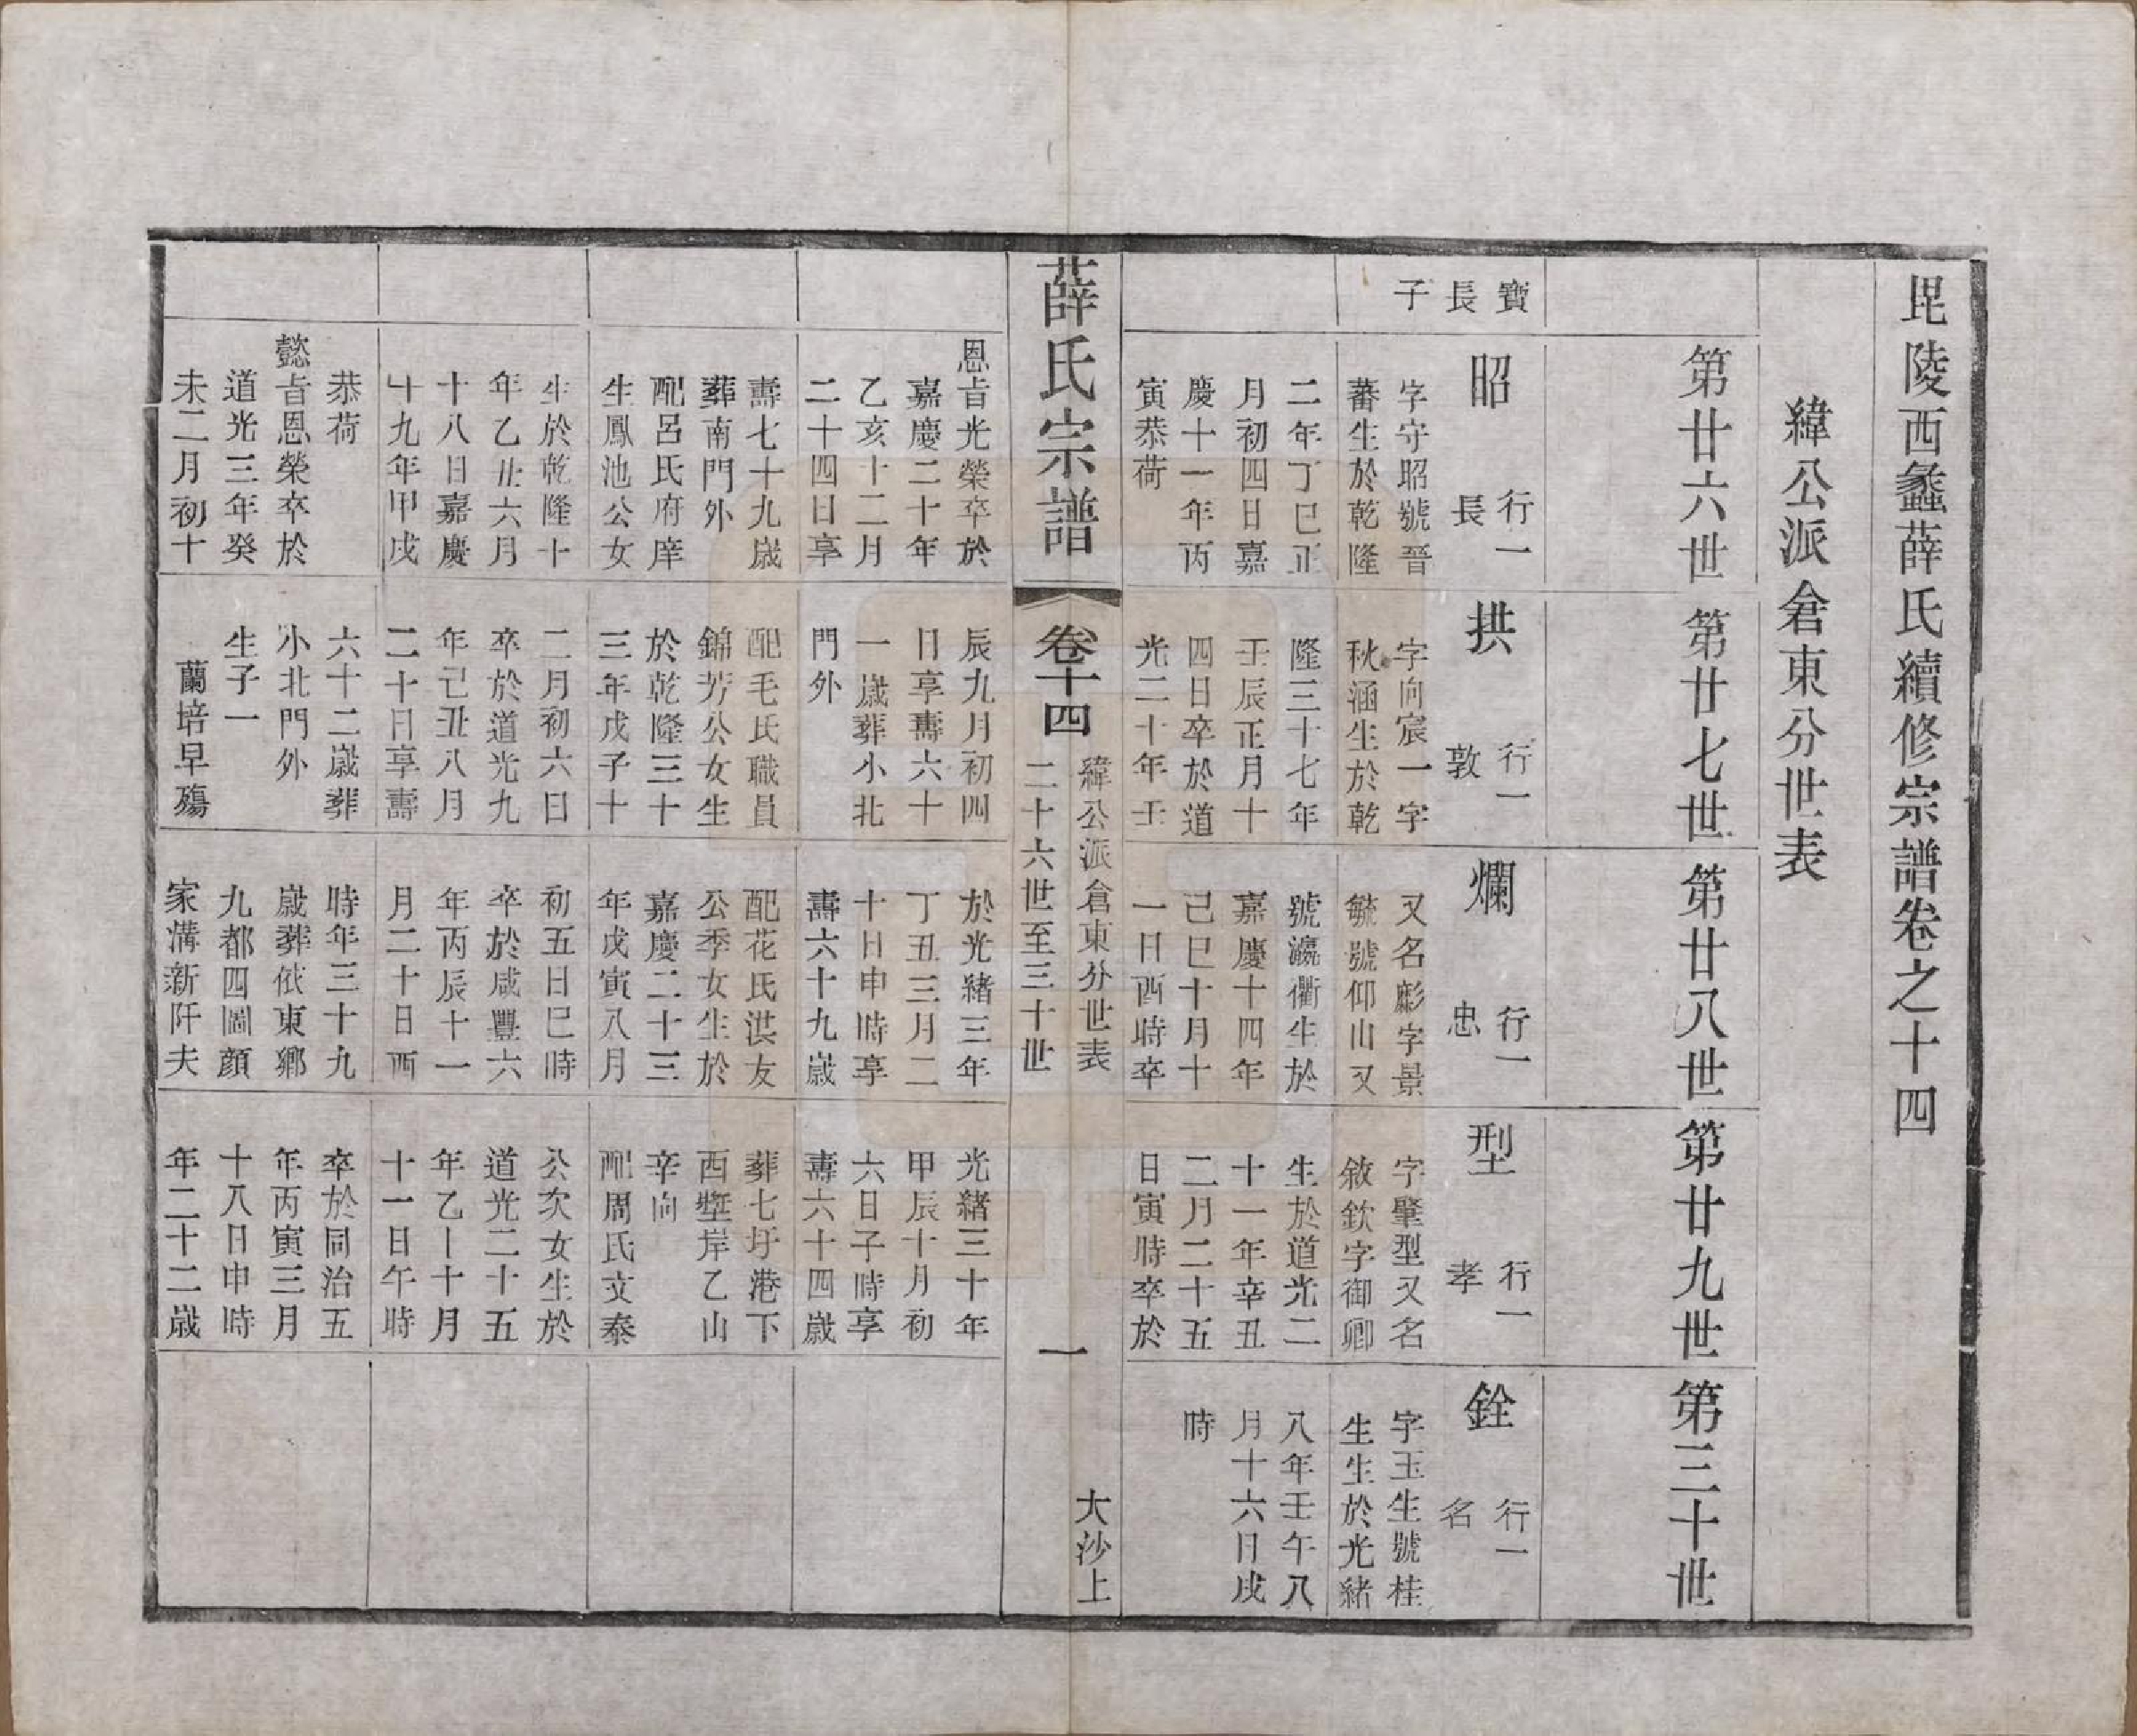 毘陵西蠡薛氏續修宗譜卷之十四
緯公派倉東分世表
第廿六世
第廿七世
第廿八世
第廿九世
第三十世
寶
長
子
昭
行一
長
字守昭號晉
蕃生於乾隆
二年丁巳正
月初四日嘉
慶十一年丙
寅恭荷
拱
行一
敦
字向宸一字
秋涵生於乾
隆三十七年
壬辰正月十
四日卒於道
光二十年壬
爛
行一
忠
又名彪字景
毓號仰山又
號瀛衢生於
嘉慶十四年
己巳十月十
一日酉時卒
型
行一
孝
字肇型又名
敘欽字御卿
生於道光二
十一年辛丑
二月二十五
日寅時卒於
銓
行一
名
字玉生號桂
生生於光緒
八年壬午八
月十六日戌
時
薛氏宗譜
卷十四
緯公派倉東分世表
二十六世至三十世
一
大沙上
恩旨光榮卒於
嘉慶二十年
乙亥十二月
二十四日享
壽七十九歲
葬南門外
配呂氏府庠
生鳳池公女
生於乾隆十
年乙丑六月
十八日嘉慶
十九年甲戌
恭荷
懿旨恩榮卒於
道光三年癸
未二月初十
辰九月初四
日享壽六十
一歲葬小北
門外
配毛氏職員
錦芳公女生
於乾隆三十
三年戊子十
二月初六日
卒於道光九
年己丑八月
二十日享壽
六十二歲葬
小北門外
生子一
蘭培早殤
於光緒三年
丁丑三月二
十日申時享
壽六十九歲
配花氏洪友
公季女生於
嘉慶二十三
年戊寅八月
初五日巳時
卒於咸豐六
年丙辰十一
月二十日酉
時年三十九
歲葬依東鄉
九都四圖顏
家溝新阡夫
光緒三十年
甲辰十月初
六日子時享
壽六十四歲
葬七圩港下
西壟岸乙山
辛向
配周氏文泰
公次女生於
道光二十五
年乙十月
十一日午時
卒於同治五
年丙寅三月
十八日申時
年二十二歲